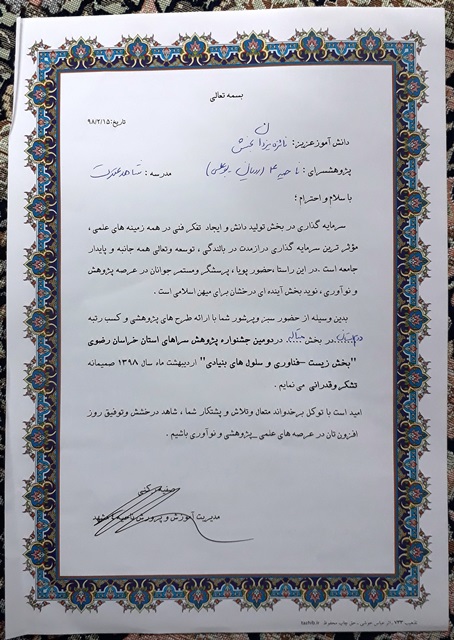 بسمه تعالی
تاریخ: ۹۸/۲/۱۵
دانش آموز عزیز: فائزه یزدان بخش
پژوهشسرای: ناحیه ۴ ( بوعلی) مدرسه: شاهد عترت
با سلام و احترام ؛
سرمایه گذاری در بخش تولید دانش و ایجاد تفکر فنی در همه زمینه های علمی ،
مؤثر ترین سرمایه گذاری درازمدت در بالندگی ، توسعه وتعالی همه جانبه و پایدار
جامعه است .در این راستا ،حضور پویا ، پرسشگر ومستمر جوانان در عرصه پژوهش
و نوآوری ، نوید بخش آینده ای درخشان برای میهن اسلامی است .
بدین وسیله از حضور سبز وپرشور شما با ارائه طرح های پژوهشی و کسب رتبه
در بخش در دومین جشنواره پژوهش سراهای استان خراسان رضوی
"بخش زیست –فناوری و سلول های بنیادی" اردیبهشت ماه سال ۱۳۹۸ صمیمانه
تشکر وقدرانی می نمایم .
امید است با توکل برخداوند متعال وتلاش و پشتکار شما ، شاهد درخشش وتوفیق روز
افزون تان در عرصه های علمی _پژوهشی و نوآوری باشیم .
مدیریت آموزش و پرورش ناحیه ۴ مشهد